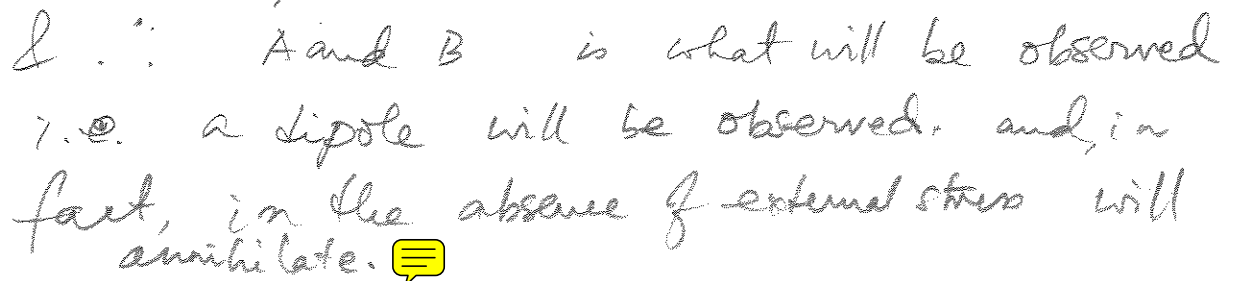 & ∴ A and B is what will be observed
i.e. a dipole will be observed. and, in
fact, in the absence of external stress will
annihilate.